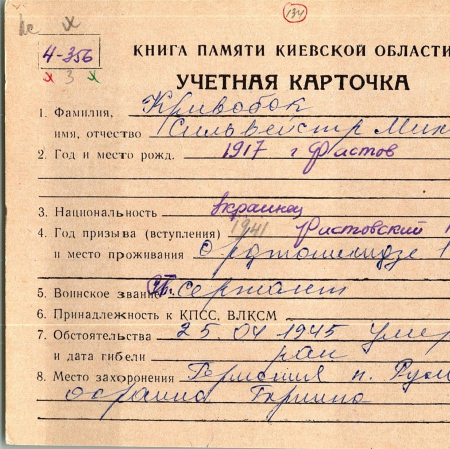 134
4-356
х 3 х
КНИГА ПАМЯТИ КИЕВСКОЙ ОБЛАСТИ
УЧЕТНАЯ КАРТОЧКА
1. Фамилия, Кривобок
имя, отчество Сильвейстр Мик
2. Год и место рожд. 1917 г Фастов
3. Национальность украинец
4. Год призыва (вступления) 1941 Фастовский
и место проживания Орджоникидзе 1
5. Воинское звание Ст. сержант
6. Принадлежность к КПСС, ВЛКСМ
7. Обстоятельства 25.04 1945 умер
и дата гибели ран
8. Место захоронения Германия п.
окраина Берлина